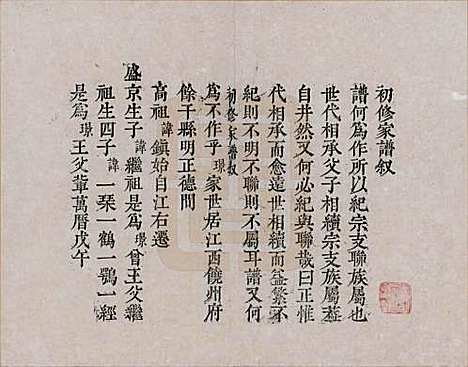 初修家譜叙
譜何爲作所以紀宗支聯族屬也
世代相承父子相續宗支族屬
自井然又何必紀與聯哉曰正惟
代相承而愈遠世相續而益繁不
紀則不明不聯則不屬耳譜又何
初修家譜叙
爲不作乎璟家世居江西饒州府
餘干縣明正德間
高祖諱鎮始自江右遷
盛京生子諱繼祖是爲璟曾王父繼
祖生四子諱一琹一鶴一鶚一經
是爲璟王父輩萬曆戊午